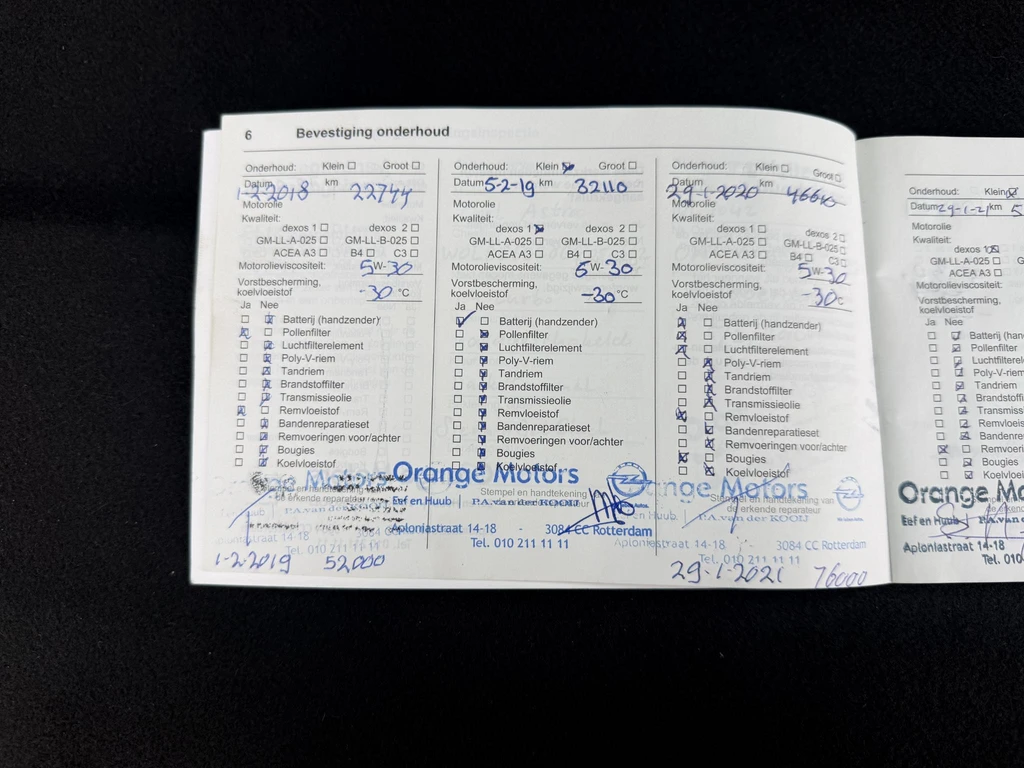 6 Bevestiging onderhoud
Onderhoud: Klein ☐ Groot ☐
Datum 1-2-2018 km 22744
Motorolie
Kwaliteit:
dexos 1 ☐ dexos 2 ☐
GM-LL-A-025 ☐ GM-LL-B-025 ☐
ACEA A3 ☐ B4 ☐ C3 ☐
Motorolieviscositeit: 5W-30
Vorstbescherming,
koelvloeistof -30 °C
Ja Nee
☐ ☒ Batterij (handzender)
☒ ☐ Pollenfilter
☐ ☒ Luchtfilterelement
☐ ☒ Poly-V-riem
☐ ☒ Tandriem
☐ ☒ Brandstoffilter
☐ ☒ Transmissieolie
☒ ☐ Remvloeistof
☐ ☒ Bandenreparatieset
☐ ☒ Remvoeringen voor/achter
☐ ☒ Bougies
☐ ☒ Koelvloeistof
Motors
Stempel en handtekening
erkende reparateur
P.A. van der
straat 14-18
Tel. 010 211 11 11
1-2-2019 52000
Onderhoud: Klein ☒ Groot ☐
Datum 5-2-19 km 32110
Motorolie
Kwaliteit:
dexos 1 ☒ dexos 2 ☐
GM-LL-A-025 ☐ GM-LL-B-025 ☐
ACEA A3 ☐ B4 ☐ C3 ☐
Motorolieviscositeit: 5W-30
Vorstbescherming,
koelvloeistof -30 °C
Ja Nee
☑ ☐ Batterij (handzender)
☐ ☒ Pollenfilter
☐ ☒ Luchtfilterelement
☐ ☒ Poly-V-riem
☐ ☒ Tandriem
☐ ☒ Brandstoffilter
☐ ☒ Transmissieolie
☐ ☒ Remvloeistof
☐ ☒ Bandenreparatieset
☐ ☒ Remvoeringen voor/achter
☐ ☒ Bougies
☐ ☒ Koelvloeistof
Orange Motors
Stempel en handtekening
Eef en Huub P.A. van der KOOIJ
Aploniastraat 14-18 - 3084 CC Rotterdam
Tel. 010 211 11 11
Onderhoud: Klein ☐ Groot ☐
Datum 29-1-2020 km 46610
Motorolie
Kwaliteit:
dexos 1 ☐ dexos 2 ☐
GM-LL-A-025 ☐ GM-LL-B-025 ☐
ACEA A3 ☐ B4 ☐ C3 ☐
Motorolieviscositeit: 5W-30
Vorstbescherming,
koelvloeistof -30 c
Ja Nee
☒ ☐ Batterij (handzender)
☒ ☐ Pollenfilter
☒ ☐ Luchtfilterelement
☐ ☒ Poly-V-riem
☐ ☒ Tandriem
☐ ☒ Brandstoffilter
☐ ☒ Transmissieolie
☒ ☐ Remvloeistof
☐ ☒ Bandenreparatieset
☐ ☒ Remvoeringen voor/achter
☒ ☐ Bougies
☐ ☒ Koelvloeistof
Orange Motors
Stempel en handtekening van
de erkende reparateur
en Huub P.A. van der KOOIJ
Aploniastraat 14-18 - 3084 CC Rotterdam
Tel. 010 211 11 11
29-1-2021 76000
Onderhoud: Klein ☒
Datum 29-1-21 km 5
Motorolie
Kwaliteit:
dexos 1 ☒
GM-LL-A-025 ☐
ACEA A3 ☐
Motorolieviscositeit:
Vorstbescherming,
koelvloeistof
Ja Nee
☐ ☒ Batterij (han
☐ ☒ Pollenfilter
☐ ☒ Luchtfiltere
☐ ☒ Poly-V-riem
☐ ☒ Tandriem
☐ ☒ Brandstoffi
☐ ☒ Transmiss
☐ ☒ Remvloeis
☐ ☒ Bandenre
☒ ☐ Remvoeri
☐ ☒ Bougies
☐ ☒ Koelvloeis
Orange Mo
Eef en Huub P.A. van
Aploniastraat 14-18
Tel. 010